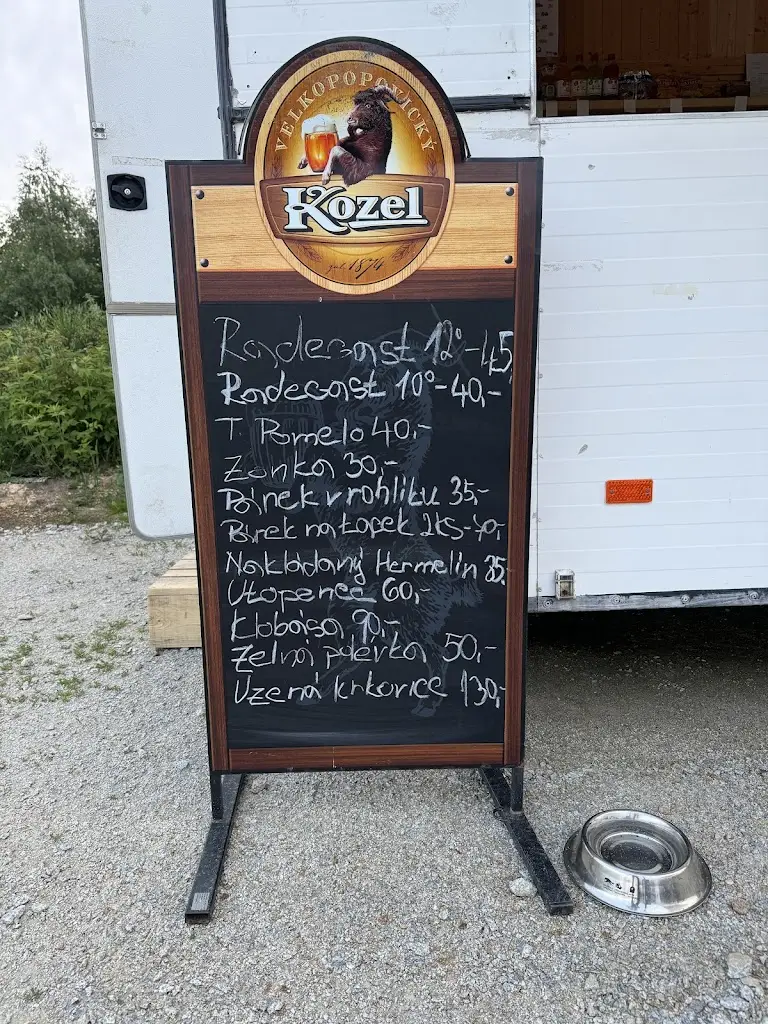 VELKOPOPOVICKÝ
Kozel
jak 1874
Radegast 12°-45,
Radegast 10°-40,-
T. Pomelo 40,-
Zonka 30,-
Párek v rohlíku 35,-
Párek na ťapek 2ks-40,-
Nakládaný Hermelín 85,-
Utopenec 60,-
Klobása 90,-
Zelná polévka 50,-
Uzená krkovice 130,-